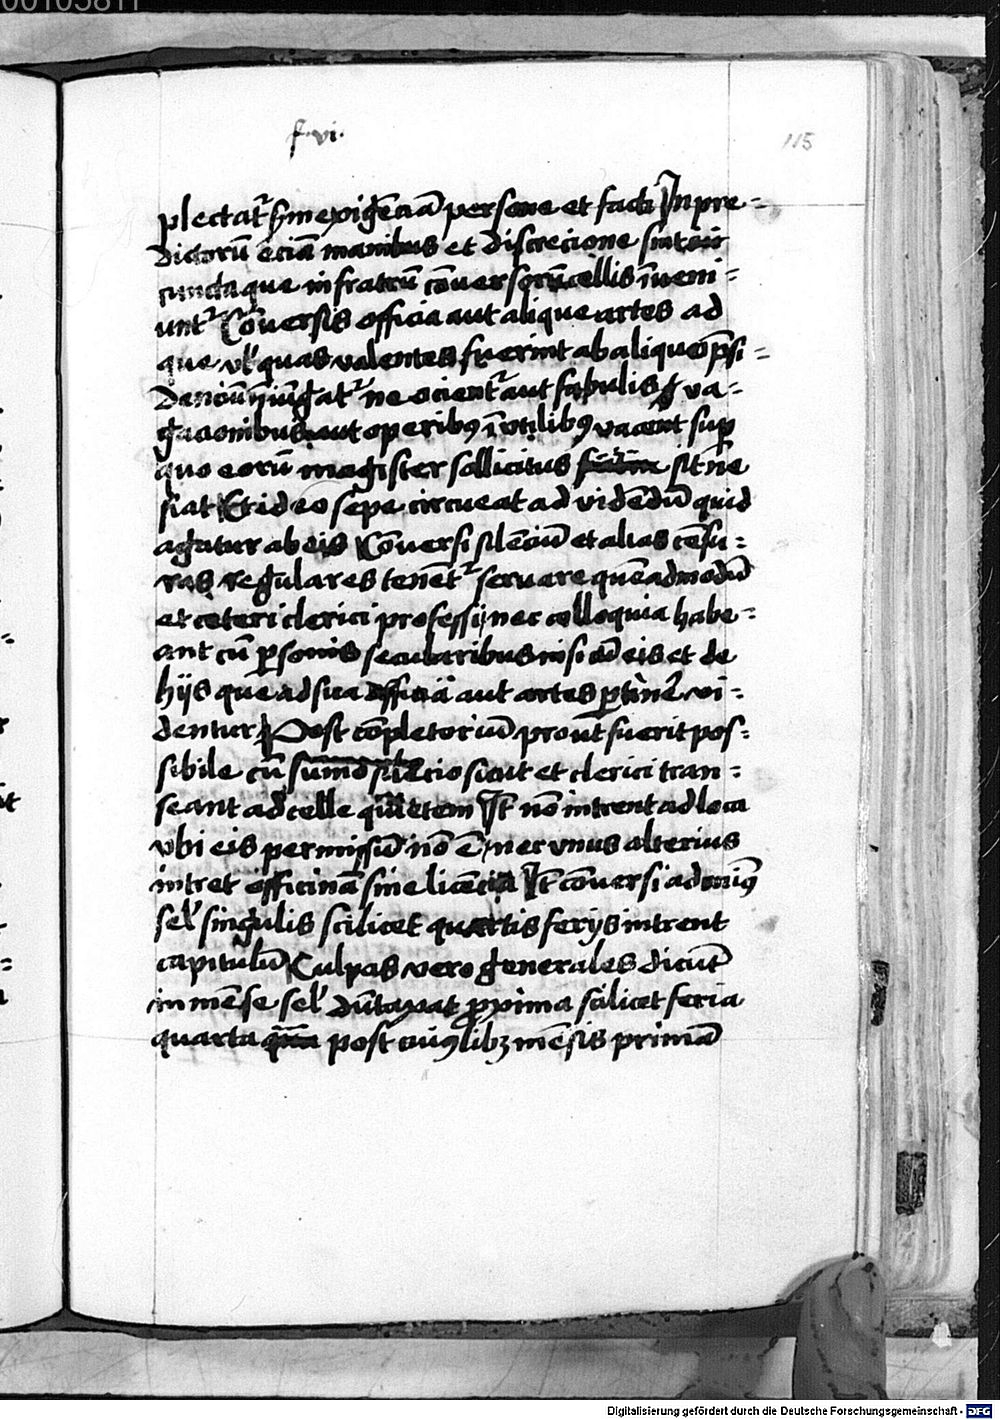 00105811
f. vi.
115
plectat᷑ s̄m exigēciā persone et facti In pre-
dictorū eciā manibus et discrecione sint
cunctaque in fratrū cōuersorū cellis īueni-
unt᷑ Cōuersis officia aut alique artes ad
que vl' quas valentes fuerint ab aliquo p̄si-
denciū īiūgat᷑ ne ocient᷑ aut fabulis & va-
gacionibus aut operibꝯ īvtilibꝯ vacent suꝑ
quo eorū magister sollicitus sit ne
fiat Et ideo sepe circueat ad vidēdū quid
agatur ab eis Cōuersi silēciū et alias cēsu-
ras regulares tenēt᷑ seruare quēadmodū
et ceteri clerici professi nec colloquia habe-
ant cū ꝑsonis secularibus nisi cū eis et de
hijs que ad sua officia aut artes ꝑtinē vi-
dentur Post cōpletoriū prout fuerit pos-
sibile cū sūmo silēcio sicut et clerici tran-
seant ad celle quietem It̄ nō intrent ad loca
vbi eis permissū nō ē nec vnus alterius
intret officinā sine licēcia It̄ cōuersi ad minꝯ
sel' singulis scilicet quartis ferijs intrent
capitulū Culpas vero generales dicūt
in mēse sel' dūtaxat ꝓxima scilicet feria
quarta post cuiꝯlibꝫ mēsis primā
Digitalisierung gefördert durch die Deutsche Forschungsgemeinschaft - DFG